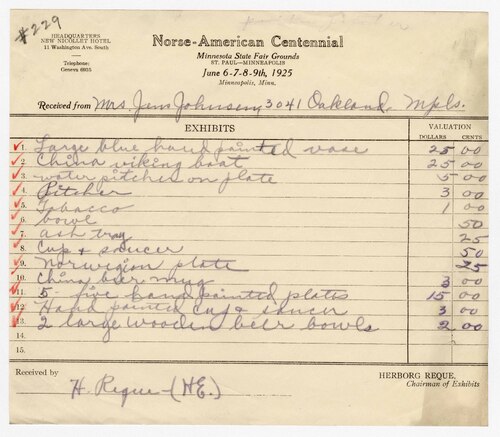 #229
HEADQUARTERS
NEW NICOLLET HOTEL
11 Washington Ave. South
Telephone:
Geneva 6935
Norse-American Centennial
Minnesota State Fair Grounds
ST. PAUL—MINNEAPOLIS
June 6-7-8-9th, 1925
Minneapolis, Minn.
Received from Mrs. Jens Johnsen, 3041 Oakland, Mpls.
EXHIBITS VALUATION
DOLLARS CENTS
1. Large blue hand painted vase 25 00
2. China viking boat 25 00
3. water pitcher on plate 5 00
4. Pitcher 3 00
5. Tobacco 1 00
6. bowl 50
7. ash tray 25
8. Cup & saucer 50
9. Norwegian plate 25
10. China beer mug 3 00
11. 5- five hand painted plates 15 00
12. Hand painted cup & saucer 3 00
13. 2 large wooden beer bowls 2 00
14.
15.
Received by
H. Reque-(H.E.)
HERBORG REQUE,
Chairman of Exhibits